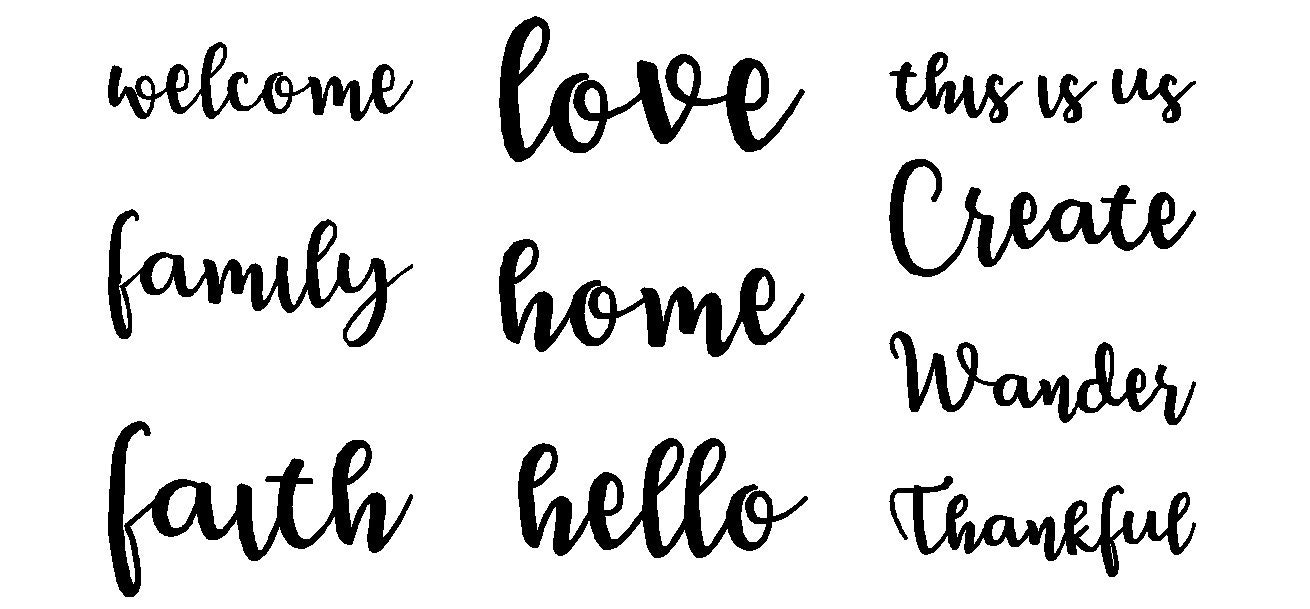 welcome
family
faith
love
home
hello
this is us
Create
Wander
Thankful